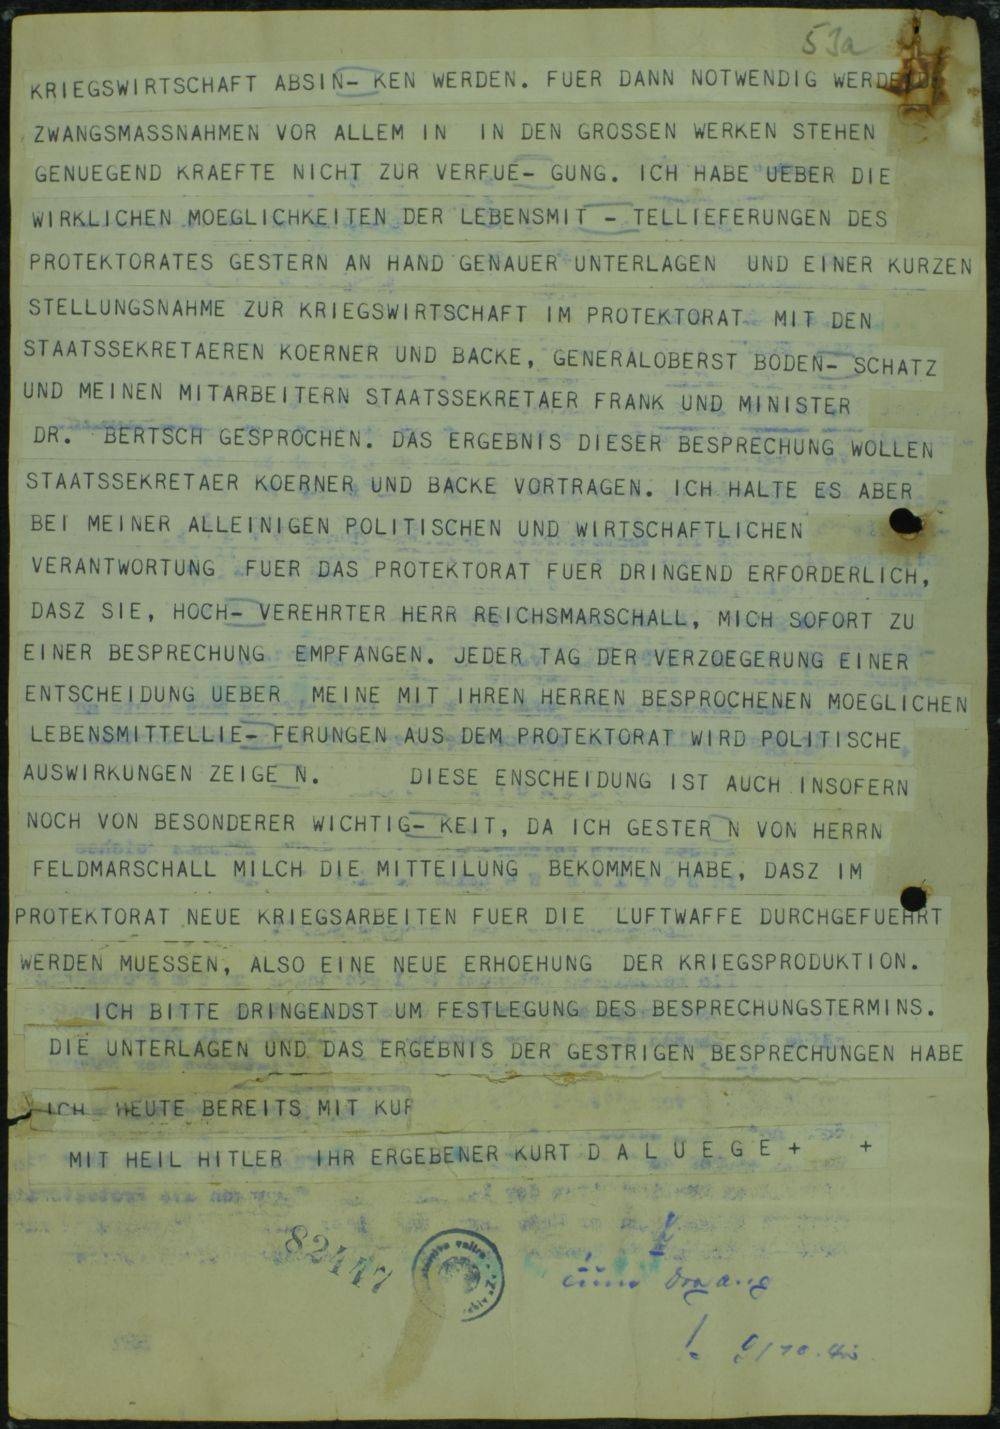 53a
KRIEGSWIRTSCHAFT ABSIN- KEN WERDEN. FUER DANN NOTWENDIG WERDEND
ZWANGSMASSNAHMEN VOR ALLEM IN IN DEN GROSSEN WERKEN STEHEN
GENUEGEND KRAEFTE NICHT ZUR VERFUE- GUNG. ICH HABE UEBER DIE
WIRKLICHEN MOEGLICHKEITEN DER LEBENSMIT - TELLIEFERUNGEN DES
PROTEKTORATES GESTERN AN HAND GENAUER UNTERLAGEN UND EINER KURZEN
STELLUNGSNAHME ZUR KRIEGSWIRTSCHAFT IM PROTEKTORAT MIT DEN
STAATSSEKRETAEREN KOERNER UND BACKE, GENERALOBERST BODEN- SCHATZ
UND MEINEN MITARBEITERN STAATSSEKRETAER FRANK UND MINISTER
DR. BERTSCH GESPROCHEN. DAS ERGEBNIS DIESER BESPRECHUNG WOLLEN
STAATSSEKRETAER KOERNER UND BACKE VORTRAGEN. ICH HALTE ES ABER
BEI MEINER ALLEINIGEN POLITISCHEN UND WIRTSCHAFTLICHEN
VERANTWORTUNG FUER DAS PROTEKTORAT FUER DRINGEND ERFORDERLICH,
DASZ SIE, HOCH- VEREHRTER HERR REICHSMARSCHALL, MICH SOFORT ZU
EINER BESPRECHUNG EMPFANGEN. JEDER TAG DER VERZOEGERUNG EINER
ENTSCHEIDUNG UEBER MEINE MIT IHREN HERREN BESPROCHENEN MOEGLICHEN
LEBENSMITTELLIE- FERUNGEN AUS DEM PROTEKTORAT WIRD POLITISCHE
AUSWIRKUNGEN ZEIGE N. DIESE ENSCHEIDUNG IST AUCH INSOFERN
NOCH VON BESONDERER WICHTIG- KEIT, DA ICH GESTER N VON HERRN
FELDMARSCHALL MILCH DIE MITTEILUNG BEKOMMEN HABE, DASZ IM
PROTEKTORAT NEUE KRIEGSARBEITEN FUER DIE LUFTWAFFE DURCHGEFUEHRT
WERDEN MUESSEN, ALSO EINE NEUE ERHOEHUNG DER KRIEGSPRODUKTION.
ICH BITTE DRINGENDST UM FESTLEGUNG DES BESPRECHUNGSTERMINS.
DIE UNTERLAGEN UND DAS ERGEBNIS DER GESTRIGEN BESPRECHUNGEN HABE
ICH HEUTE BEREITS MIT KUR
MIT HEIL HITLER IHR ERGEBENER KURT D A L U E G E + +
82447
9/10.